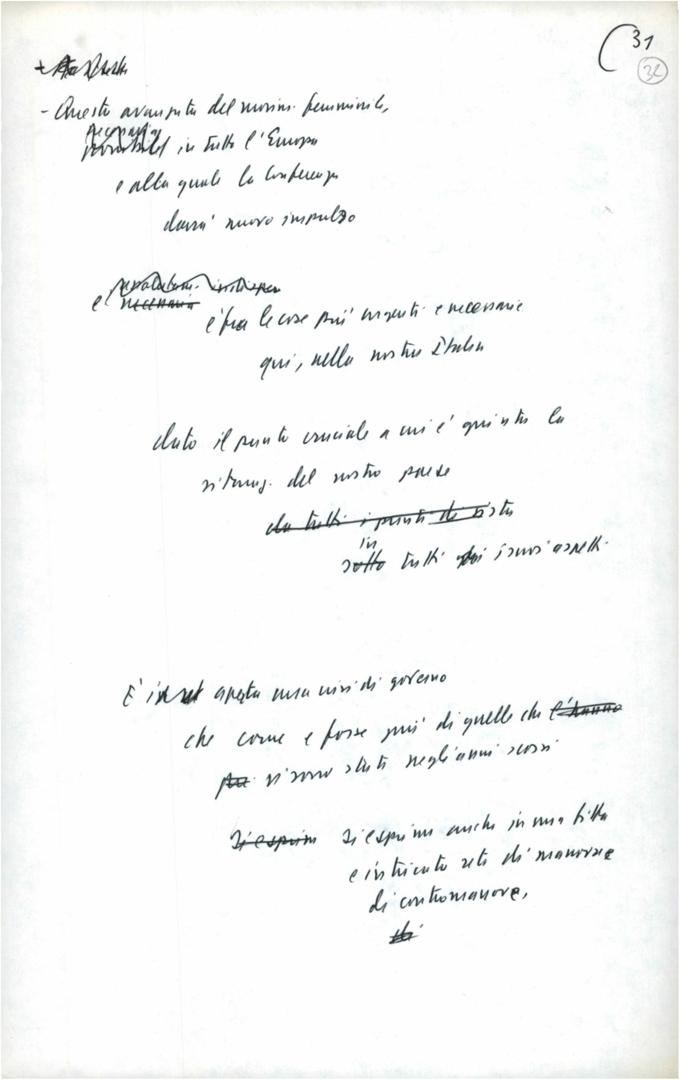 31
32
- Questa avanzata del movim. femminile,
necessaria
in tutta l'Europa
e alla quale la Conferenza
darà nuovo impulso
e necessaria
è fra le cose più urgenti e necessarie
qui, nella nostra Italia
dato il punto cruciale a cui è giunta la
situaz. del nostro paese
da tutti i punti di vista
in
sotto tutti i suoi aspetti.
È aperta una crisi di governo
che come e forse più di quelle che l'hanno
vi sono state negli anni scorsi
Si esprim Si esprime anche in una fitta
e intricata rete di manovre e
di contromanovre,
di